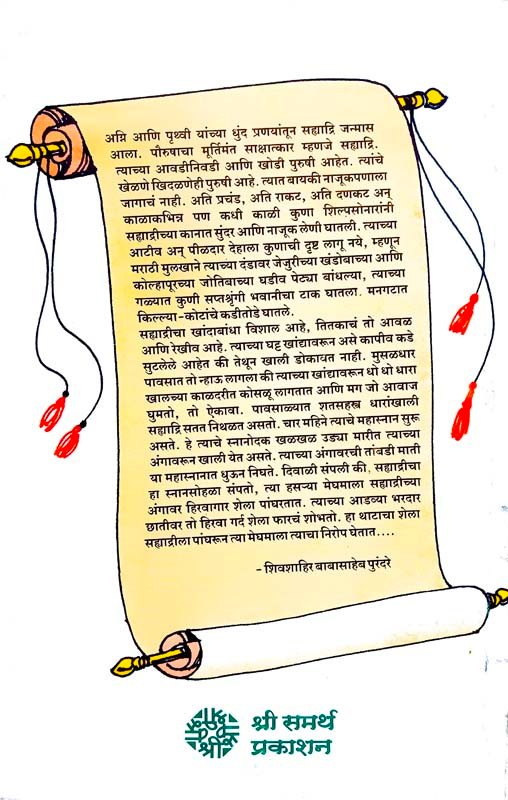 अग्नि आणि पृथ्वी यांच्या धुंद प्रणयांतून सह्याद्रि जन्मास
आला. पौरुषाचा मूर्तिमंत साक्षात्कार म्हणजे सह्याद्रि.
त्याच्या आवडीनिवडी आणि खोडी पुरुषी आहेत. त्यांचे
खेळणे खिदळणेही पुरुषी आहे. त्यात बायकी नाजूकपणाला
जागाचं नाही. अति प्रचंड, अति राकट, अति दणकट अन्
काळाकभिन्न पण कधी काळी कुणा शिल्पसोनारांनी
सह्याद्रीच्या कानात सुंदर आणि नाजूक लेणी घातली. त्याच्या
आटीव अन् पीळदार देहाला कुणाची दृष्ट लागू नये, म्हणून
मराठी मुलखाने त्याच्या दंडावर जेजुरीच्या खंडोबाच्या आणि
कोल्हापूरच्या जोतिबाच्या घडीव पेट्या बांधल्या, त्याच्या
गळ्यात कुणी सप्तश्रृंगी भवानीचा टाक घातला. मनगटात
किल्ल्या-कोटांचे कडीतोडे घातले.
सह्याद्रीचा खांदाबांधा विशाल आहे, तितकाचं तो आवळ
आणि रेखीव आहे. त्याच्या घट्ट खांद्यावरून असे कापीव कडे
सुटलेले आहेत की तेथून खाली डोकायत नाही. मुसळधार
पावसात तो न्हाऊ लागला की त्याच्या खांद्यावरून धो धो धारा
खालच्या काळदरीत कोसळू लागतात आणि मग जो आवाज
घुमतो, तो ऐकावा. पावसाळ्यात शतसहस्त्र धारांखाली
सह्याद्रि सतत निथळत असतो. चार महिने त्याचे महास्नान सुरू
असते. हे त्याचे स्नानोदक खळखळ उड्या मारीत त्याच्या
अंगावरून खाली येत असते. त्याच्या अंगावरची तांबडी माती
या महास्नानात धुऊन निघते. दिवाळी संपली की, सह्याद्रीचा
हा स्नानसोहळा संपतो, त्या हसऱ्या मेघमाला सह्याद्रीच्या
अंगावर हिरवागार शेला पांघरतात. त्याच्या आडव्या भरदार
छातीवर तो हिरवा गर्द शेला फारचं शोभतो. हा थाटाचा शेला
सह्याद्रीला पांघरून त्या मेघमाला त्याचा निरोप घेतात....
- शिवशाहिर बाबासाहेब पुरंदरे
श्री
श्री समर्थ
प्रकाशन